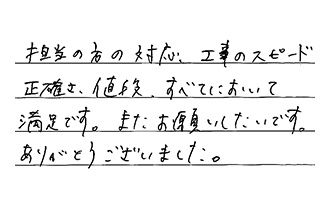 担当の方の対応、工事のスピード
正確さ、値段、すべてにおいて
満足です。またお願いしたいです。
ありがとうございました。